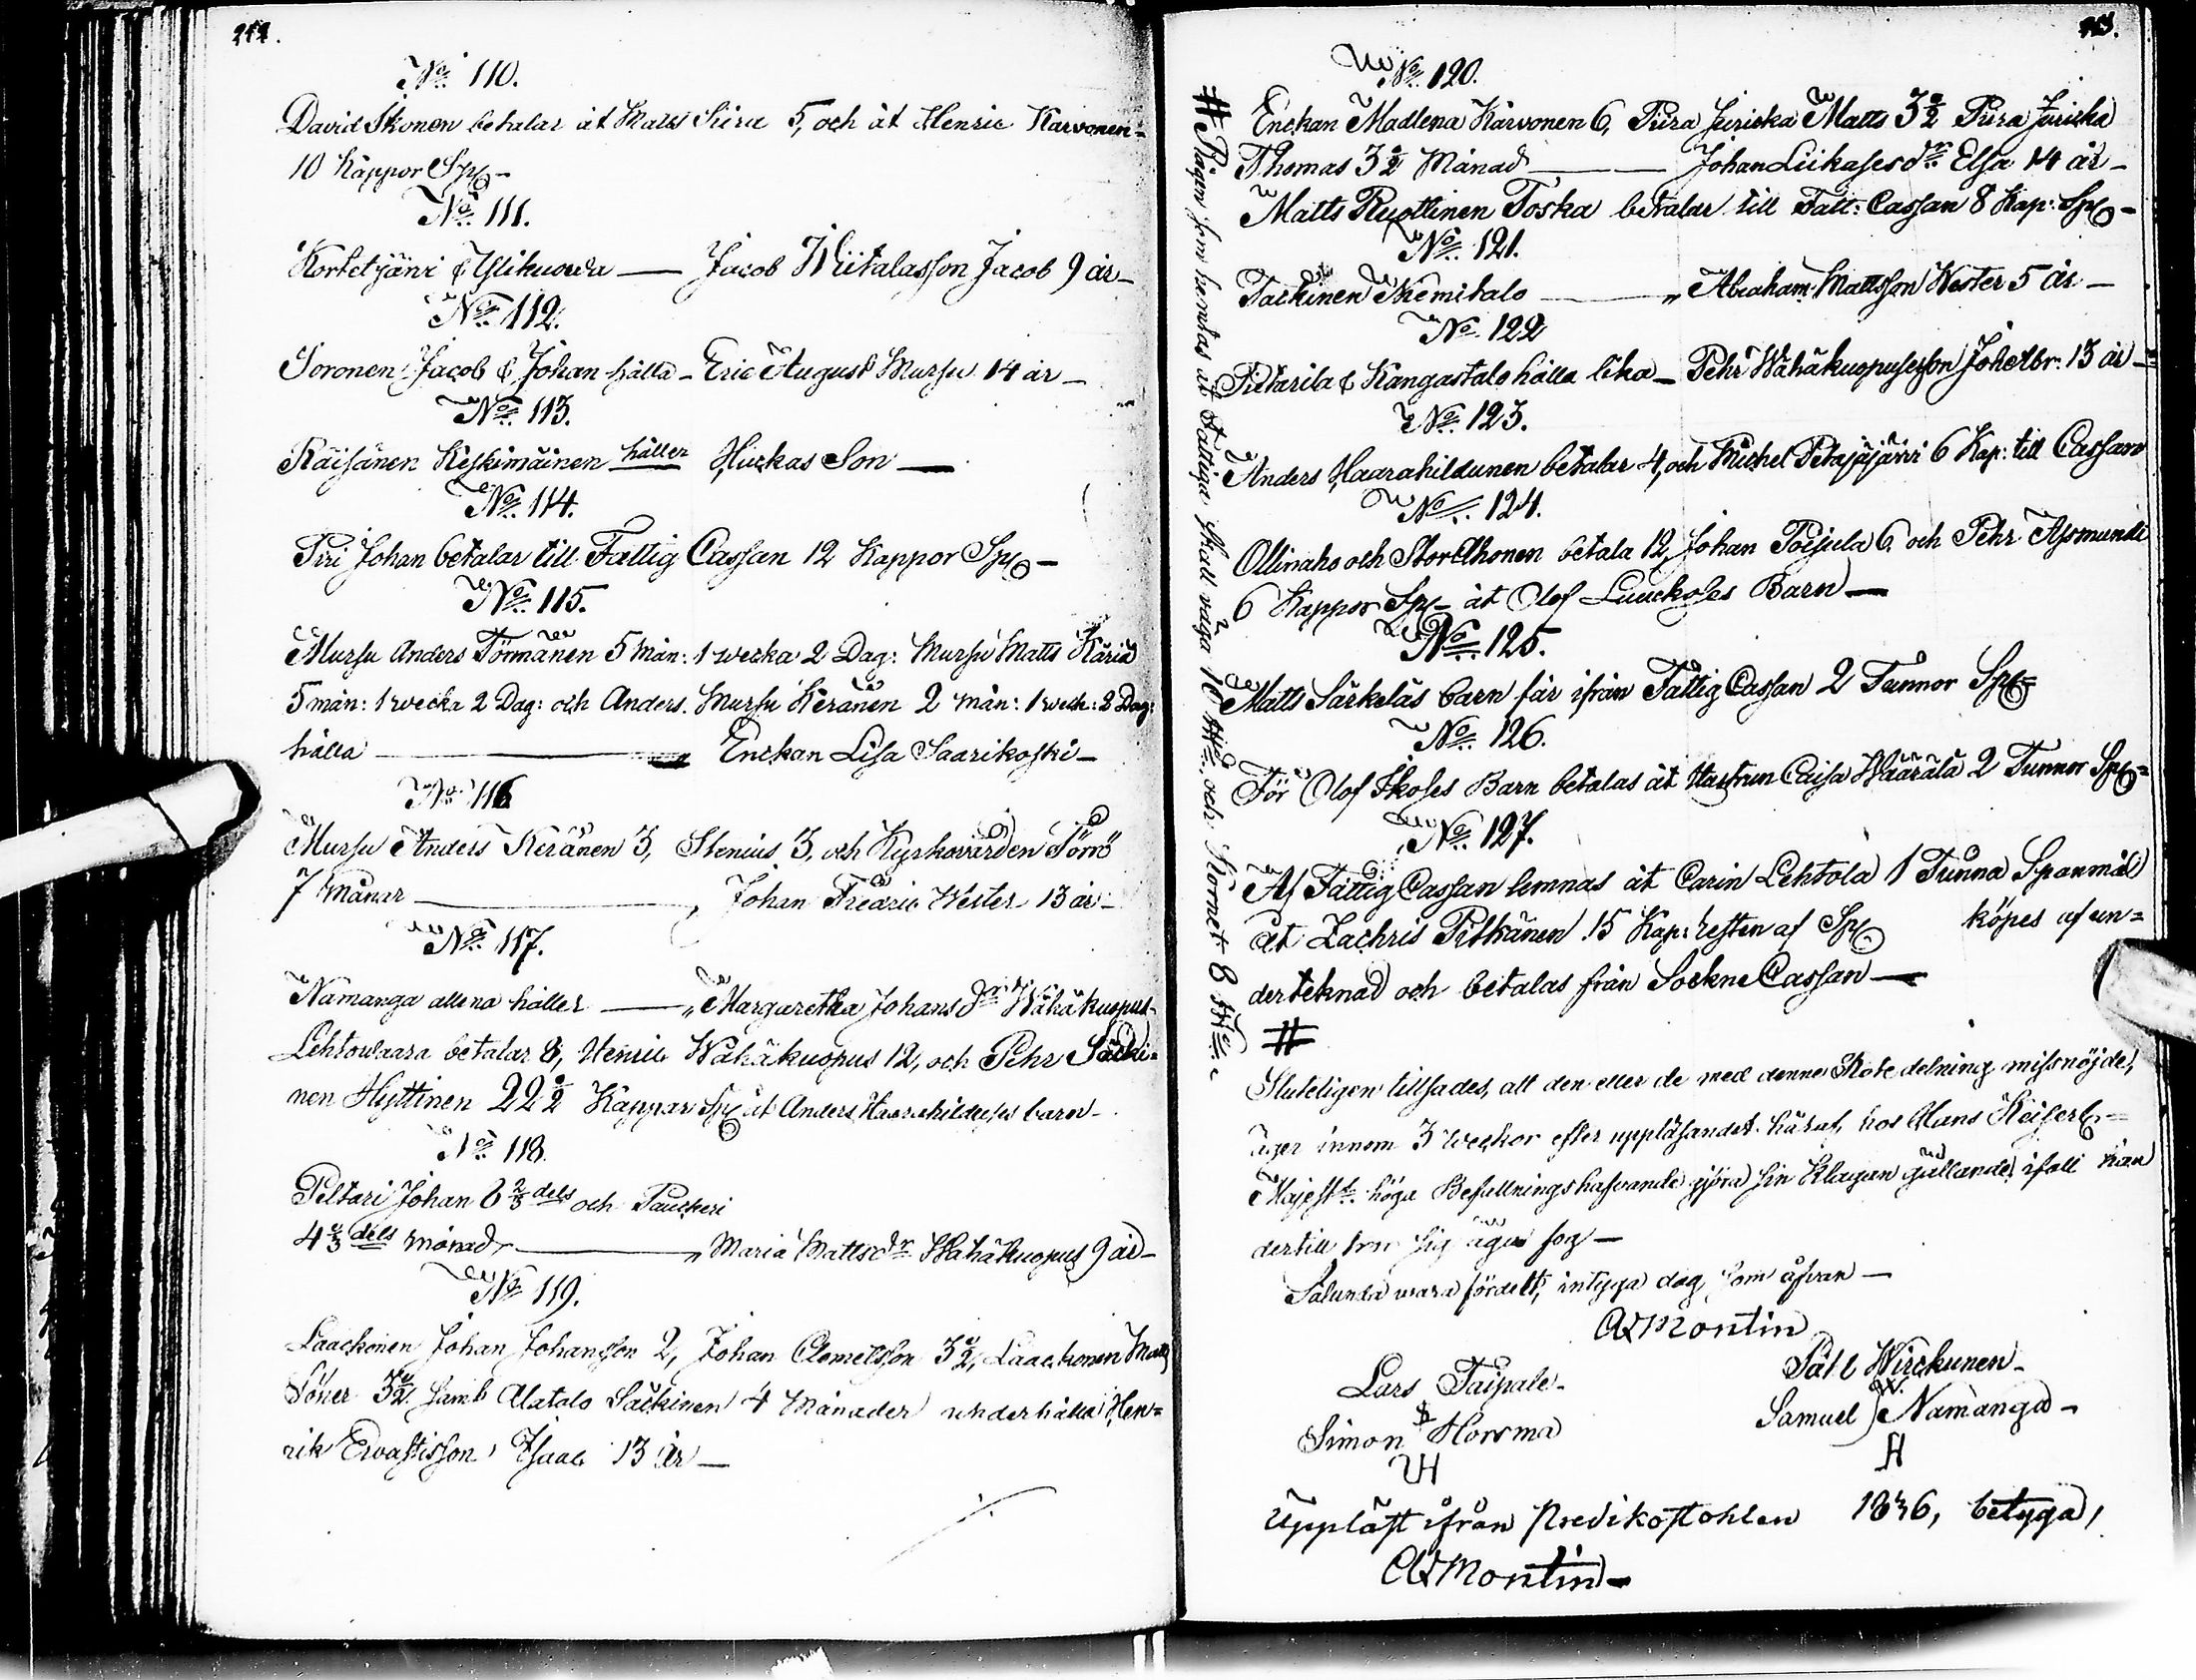 212.
No. 110.
David Ikonen betalar åt Matts Kira 5, och åt Henric Karvonen-
10 Kappor Sp.
No. 111.
Kortetjärvi & Ylikuowa — Jacob Wiitalasson Jacob 9 år —
No. 112.
Soronen Jacob & Johan hålla — Eric August Mursu 14 år —
No. 113.
Räisänen Keskimäinen håller Hurkas Son —
No. 114.
Piri Johan betalar till Fattig Cassan 12 Kappor Sp. —
No. 115.
Mursu Anders Törmänen 5 mån: 1 wecka 2 Dag: Mursu Matts Käriä
5 mån: 1 wecka 2 Dag: och Anders Mursu Keränen 2 mån: 1 weck: 2 Dag:
hålla — Enckan Lisa Saarikoski —
No. 116
Mursu Anders Keränen 3, Stenius 3, och Kyrkovärden Törrö
7 Månar — Johan Fredric Wester 13 år —
No. 117.
Nämänga allena håller — „ Margaretha Johansdr Wähäkuopus
Lehtowaara betalar 8, Henric Wähäkuopus 12, och Pehr Säcki=
nen Hyttinen 22 ½ Kappar Sp. åt Anders Haarahildusес barn —
No. 118.
Peltari Johan 6 ⅔ dels och Pauckeri
4 ⅔ dels månad — „ Maria Mattsdr Wähäkuopus 9 år —
No. 119.
Laackonen Johan Johansson 2, Johan Clemetsson 3 ½, Laackonen Matts
Söner 3 ½ samt Alatalo Säckinen 4 Månader underhålla Hen=
rik Ervastisson Isaac 13 år —
213.
No. 120.
Enckan Madlena Karvonen 6, Piira Juricka Matts 3 ½ Piira Juricka
Thomas 3 ½ Månad — Johan Liikasesdr Elsa 14 år —
Matts Ruottinen Toska betalar till Fatt: Cassan 8 Kap: Sp. —
No. 121.
Tackinen Niemitalo — „ Abraham Mattsson Wester 5 år —
No. 122
Pietarila & Kangastalo hålla lika — Pehr Wähäkuopusesson Joh Abr: 13 år —
No. 123.
Anders Haarahildunen betalar 4, och Michel Petäjäjärvi 6 Kap: till Cassan
No. 124.
Ollinaho och Stor Ahonen betala 12, Johan Poijula 6 och Pehr Asmundi
6 Kappor Sp. åt Olof Luuckoses Barn —
No. 125.
Matts Särkeläs barn får ifrån Fattig Cassan 2 Tunnor Sp.
No. 126.
För Olof Ikoses Barn betalas åt Hastrun Caisa Määrälä 2 Tunnor Sp.
No. 127.
Af Fattig Cassan lemnas åt Carin Lehtola 1 Tunna Spanmål
åt Zachris Pitkänen 15 Kap: resten af Sp. köpes af un=
dertecknad och betalas från Sockne Cassan —
#
Sluteligen tillsades, att den eller de med denne Rote delning missnöjde,
äger innom 3 weckor efter uppläsandet häraf, hos Hans Kejserl.
Majestts höga Befallningshafvande göra sin klagan gällande, ifall han
dertill tror sig äga fog —
Sålunda vara fördelt, intyga dag som åfvan —
A Montin
Lars Taipale
Påhl Wirckunen
Simon Horsma
Samuel Nämänga
Uppläst ifrån Predikostohlen 1836, betyga,
A Montin
# Rågen som hemtas åt Fattiga skall väga 10 och Kornet 8